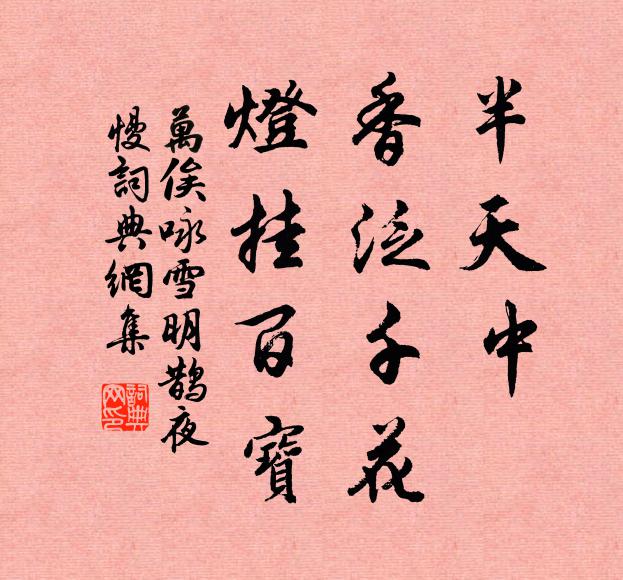 半天中
香泛千花
燈挂百寶
萬俟咏雪明鹊夜
慢詞典網集
詞典
网印